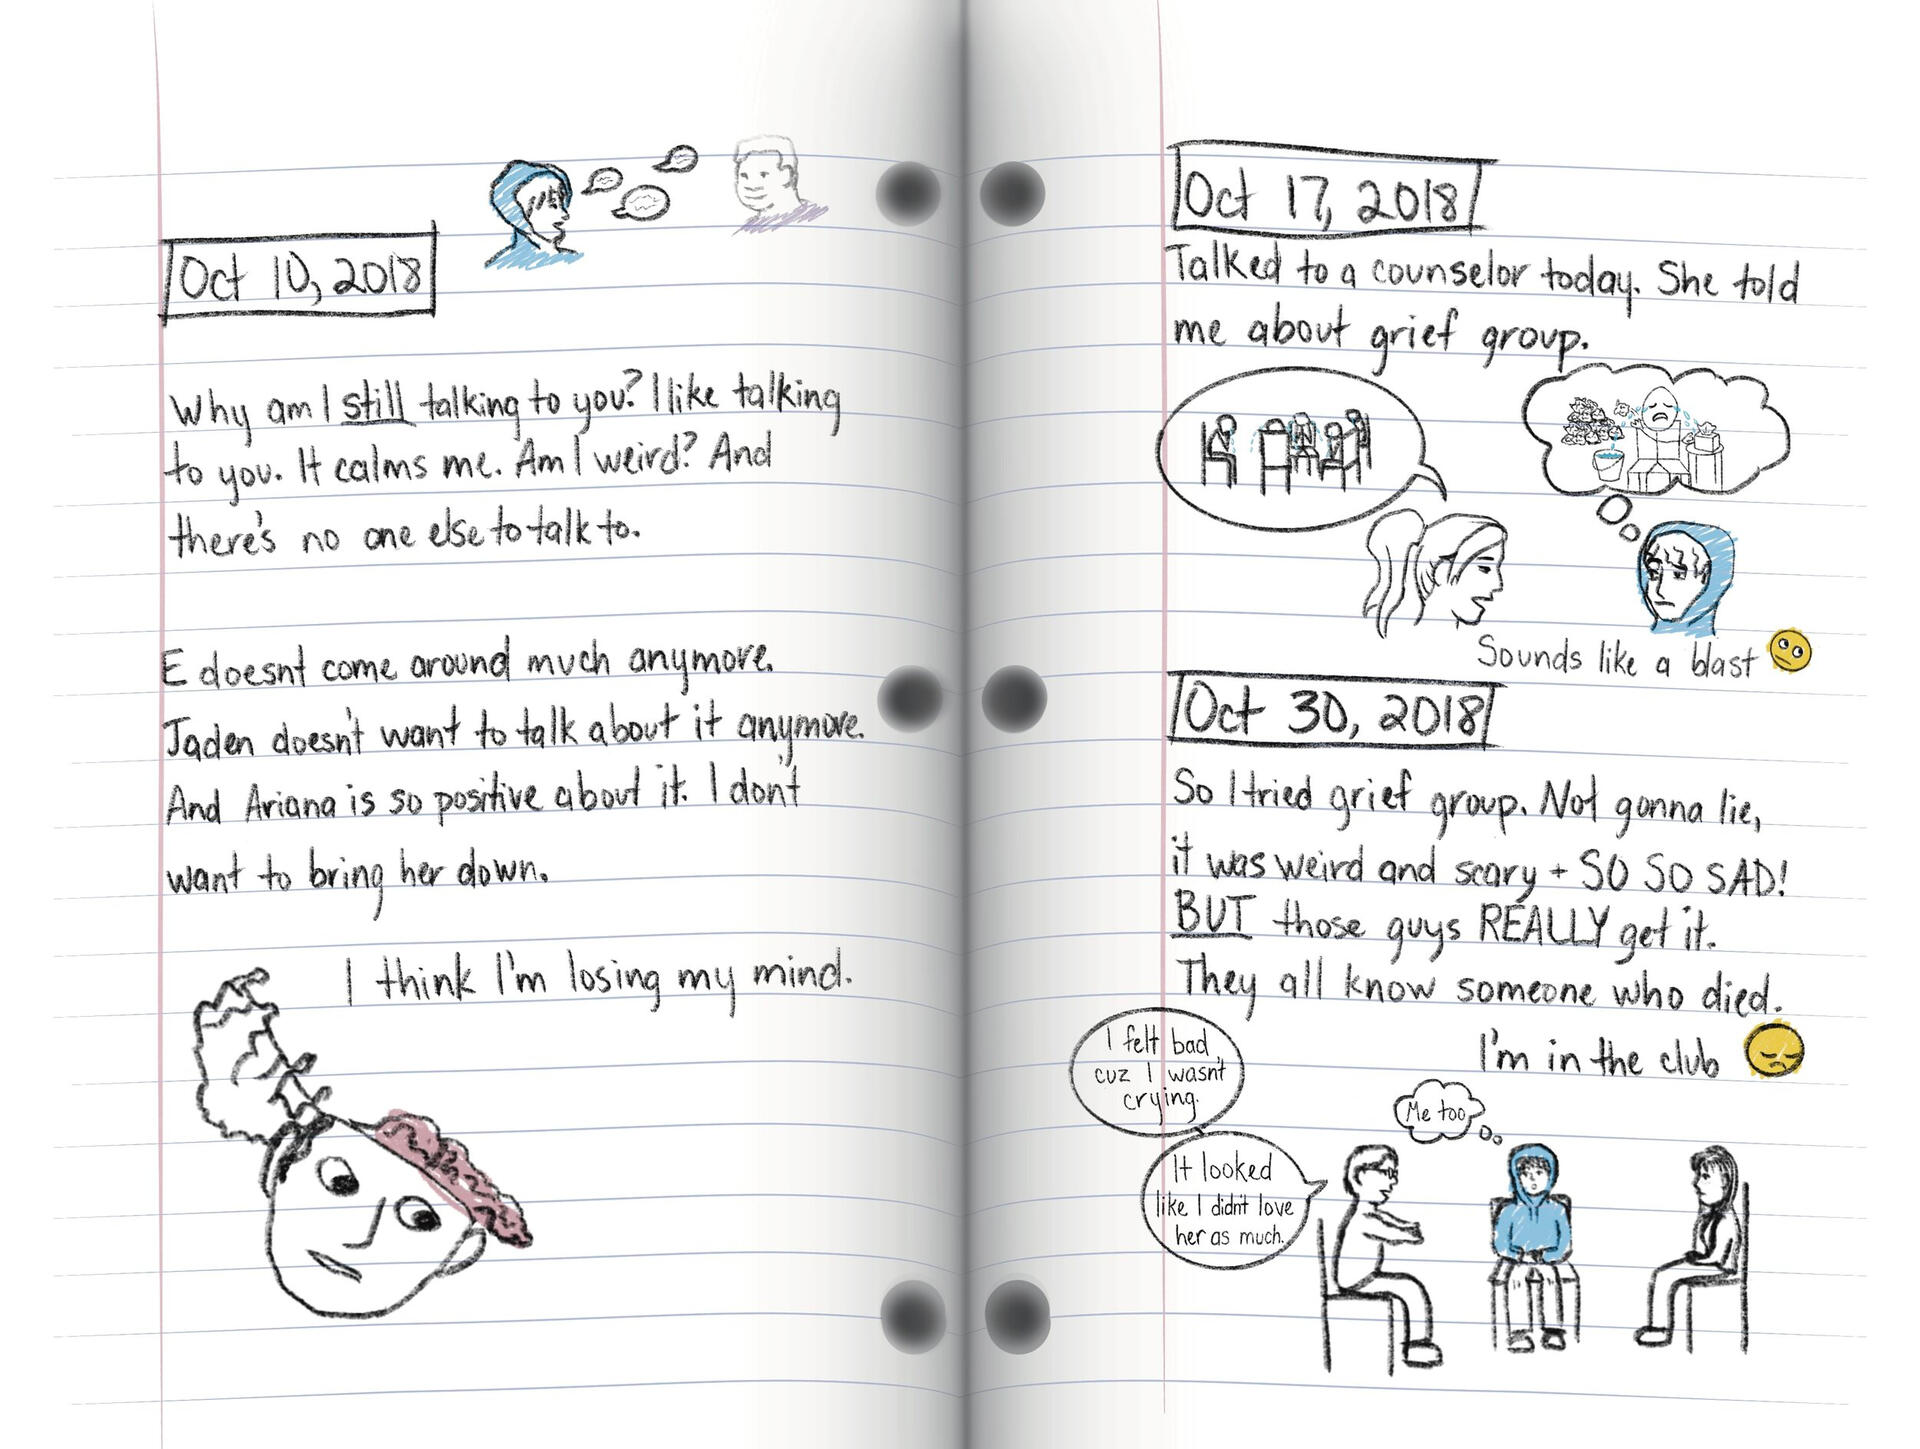 Oct 10, 2018
Why am I still talking to you? I like talking
to you. It calms me. Am I weird? And
there's no one else to talk to.
E doesnt come around much anymore.
Jaden doesn't want to talk about it anymore.
And Ariana is so positive about it. I don't
want to bring her down.
I think I'm losing my mind.
Oct 17, 2018
Talked to a counselor today. She told
me about grief group.
Sounds like a blast
Oct 30, 2018
So I tried grief group. Not gonna lie,
it was weird and scary + SO SO SAD!
BUT those guys REALLY get it.
They all know someone who died.
I'm in the club
I felt bad
cuz I wasn't
crying.
It looked
like I didn't love
her as much.
Me too